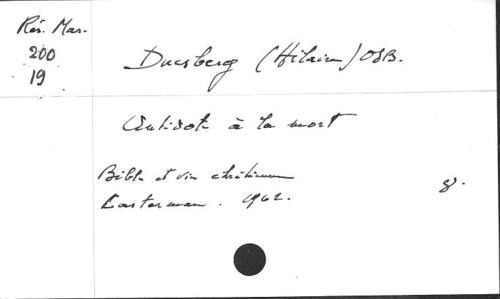 Rés. Mar.
200
19
Duesberg (Hilaire) OSB.
Antidote à la mort
Bible et vie chrétienne
Casterman. 1962.
8.